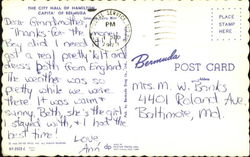 THE CITY HALL OF HAMILTON
CAPITAL OF BERMUDA
Dear Grandmother,
Thanks for the money.
Boy did I need it! I
got a real pretty kilt and
dress both from England! The
weather was so
pretty while we were
there. It was warm &
sunny. Beth, she's the girl I
stayed with, & I had the
best time!
Love
Ann
PM
Bermuda
POST CARD
Address
Mrs. M. W. Brinks
4401 Roland Ave
Baltimore, Md.